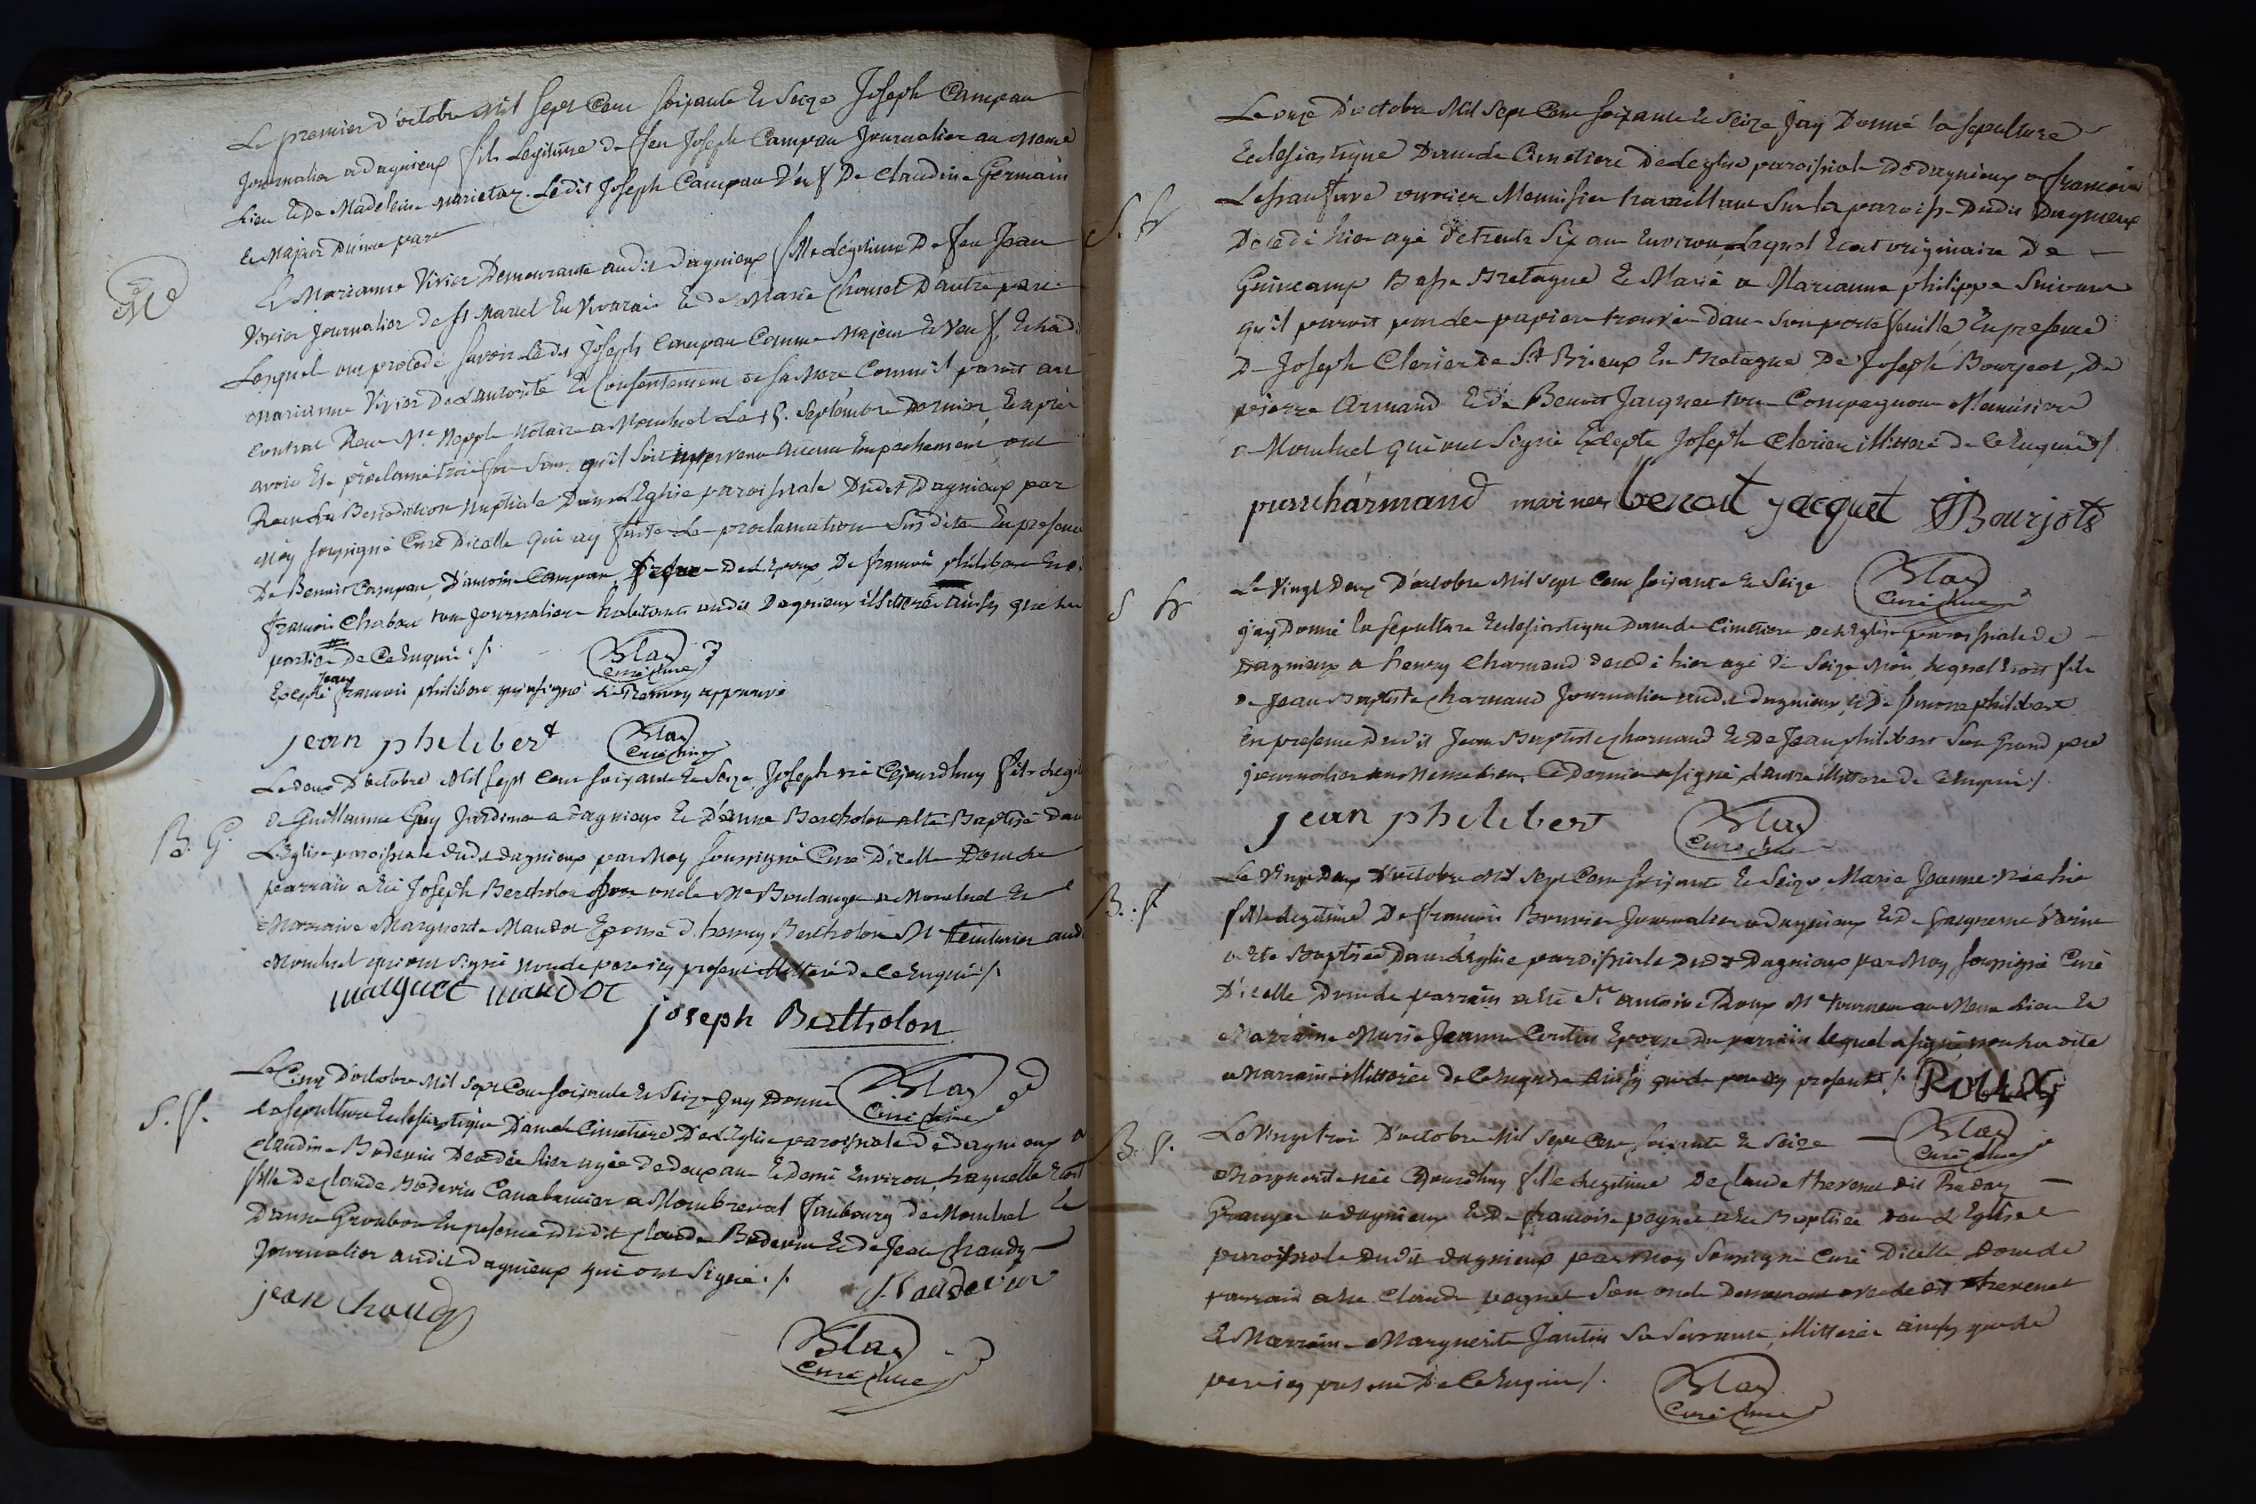 Le premier d'octobre mil sept cent soixante et seize Joseph Campan
journalier a dagnieux fils legitime de feu Joseph Campan journalier au meme
lieu et de Madeleine Ledit Joseph Campan veuf de claudine Germain
et majeur d'une part
M
Et Marianne Vivier Demeurante audit dagnieux fille legitime De feu Jean
Vivier journalier de st Marcel en vivarais et de Marie Chomel D'autre part
Lesquels ont procedé savoir Ledit Joseph Campan comme majeur et veuf, et ladite
marianne Vivier De L'autorité et consentement de sa mere comme il paroit au
contrat Reçu Me notaire a Montluel Le septembre dernier, et après
avoir été proclamé trois fois sans qu'il soit intervenu aucun empechement, ont
Reçu La Benediction nuptiale Dans L'Eglise paroissiale Dudit Dagnieux par
moy soussigné Curé Dicelle qui ay faite La proclamation susdite En presence
De Benoit Campan, D'antoine Campan De L'Epoux, De francois philibert et de
francois Chabou tous journaliers habitants audit Dagnieux illitterés ainsy que les
parties De Ce Enquis ./.
Blay
Curé
Excepté jean francois philibert qui a signé Le Renvoy approuvé
jean philibert
Blay
Curé
Le doux D'octobre Mil sept cent soixante et seize Joseph né cejourdhuy fils legit
de Guillaume Guy Jardinier a dagnieux et D'anne Bertholon a été Baptisé dans
B. G.
L'Eglise paroissiale dudit dagnieux par Moy soussigné Curé D'icelle Dont le
parrain a été Joseph Bertholon son oncle Me Boulanger a Montluel et
Marraine Marguerite Maudot Epouse d'henry Bertholon Me teinturier aud
Montluel qui ont signé non le pere icy present illitteré De Ce Enquis ./.
marguet maudot
joseph Bertholon
S. f.
Le Cinq D'octobre Mil sept Cent soixante et seize Jay Donné
Blay
Curé
La sepulture Eclesiastique Dans le Cimetiere De L'Eglise paroissiale de Dagnieux a
claudine Boderin Decedée hier agée de deux ans et demi environ, Laquelle Etoit
fille de Claude Boderin Cabaretier a Faubourg de Montluel et
D'anne Gronbon En presence dudit Claude Boderin et de Jean Chaudy
Journalier audit Dagnieux qui ont signé ./.
jean chaudy
Blay
Curé
Le onze D'octobre Mil sept Cent soixante et seize Jay Donné la sepulture
Eclesiastique Dans le Cimetiere De L'eglise paroissiale De dagnieux a francois
S. h
ouvrier Menuisier travaillant sur la paroisse Dudit Dagnieux
Decedé hier agé De trente six ans Environ, Lequel Etoit originaire De
Guincamp Basse Bretagne et Marié a Marianne philippe suivant
qu'il paroit par les papiers trouvés dans son portefeuille En presence
De Joseph Clerier de St Brieux en Bretagne De Joseph Bourjeot, De
pierre Armand et de Benoit Jacquet tous Compagnons Menuisiers
a Montluel qui ont signé Excepté Joseph Clerier illitteré de ce Enquis ./.
pierre harmand benoit jacquet J Bourjots
S h
Le vingt Deux D'octobre Mil sept Cent soixante et seize
Blay
Curé
j'ay Donné la sepulture Eclesiastique Dans le Cimetiere de L'Eglise paroissiale de
Dagnieux a henry Charnand decedé hier agé de seize mois Lequel Etoit fils
De Jean Baptiste Charnand Journalier audit dagnieux, et De simone philibert
En presence Dudit Jean Baptiste Charnand et De Jean philibert son Grand pere
journalier au meme Lieu, Ce Dernier a signé, L'autre illitteré de Ce Enquis ./.
jean philibert
Blay
Curé
Le vingt Deux D'octobre Mil sept Cent soixante et seize Marie Jeanne née hier
B. f
fille Legitime De francois Bouvier Journalier a dagnieux et De varine
a été Baptisée Dans L'Eglise paroissiale Dudit Dagnieux par Moy soussigné Curé
D'icelle Dont le parrain a été Sr antoine Roux Me tourneur au Meme Lieu et
Marraine Marie Jeanne Coutin Epouse Du parrain lequel a signé, non la dite
Marraine illitterée de Ce Enquise ainsy que le pere icy present ./.
B. f.
Le vingt trois D'octobre Mil sept Cent soixante et seize
Blay
Curé
Marguerite née Cejourdhuy fille Legitime De Claude thevenet dit
Granger a dagnieux et De francoise pagnet a été Baptisée Dans L'Eglise
paroissiale Dudit dagnieux par Moy soussigné Curé Dicelle Dont le
parrain a été Claude pagnet son oncle Demeurant thevenet
Et Marraine Marguerite Jantin sa servante illitterée ainsy que le
pere icy present De Ce Enquis ./.
Blay
Curé